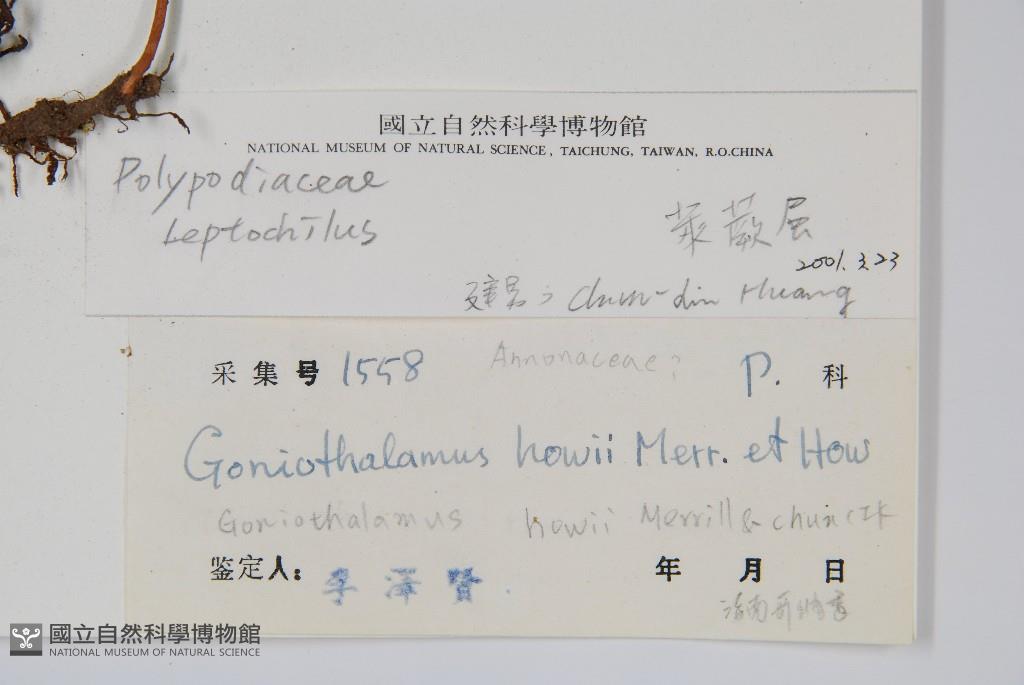 國立自然科學博物館
NATIONAL MUSEUM OF NATURAL SCIENCE, TAICHUNG, TAIWAN, R.O.CHINA
Polypodiaceae
Leptochilus
萊蕨屬
2001.3.23
Chun-din Huang
采集号 1558 Annonaceae? P. 科
Goniothalamus howii Merr. et How
Goniothalamus howii Merrill & chun
鉴定人: 李澤賢. 年 月 日
國立自然科學博物館
NATIONAL MUSEUM OF NATURAL SCIENCE